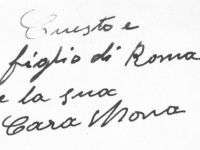 Questo e
figlio di Roma
e la sua
Cara Mona